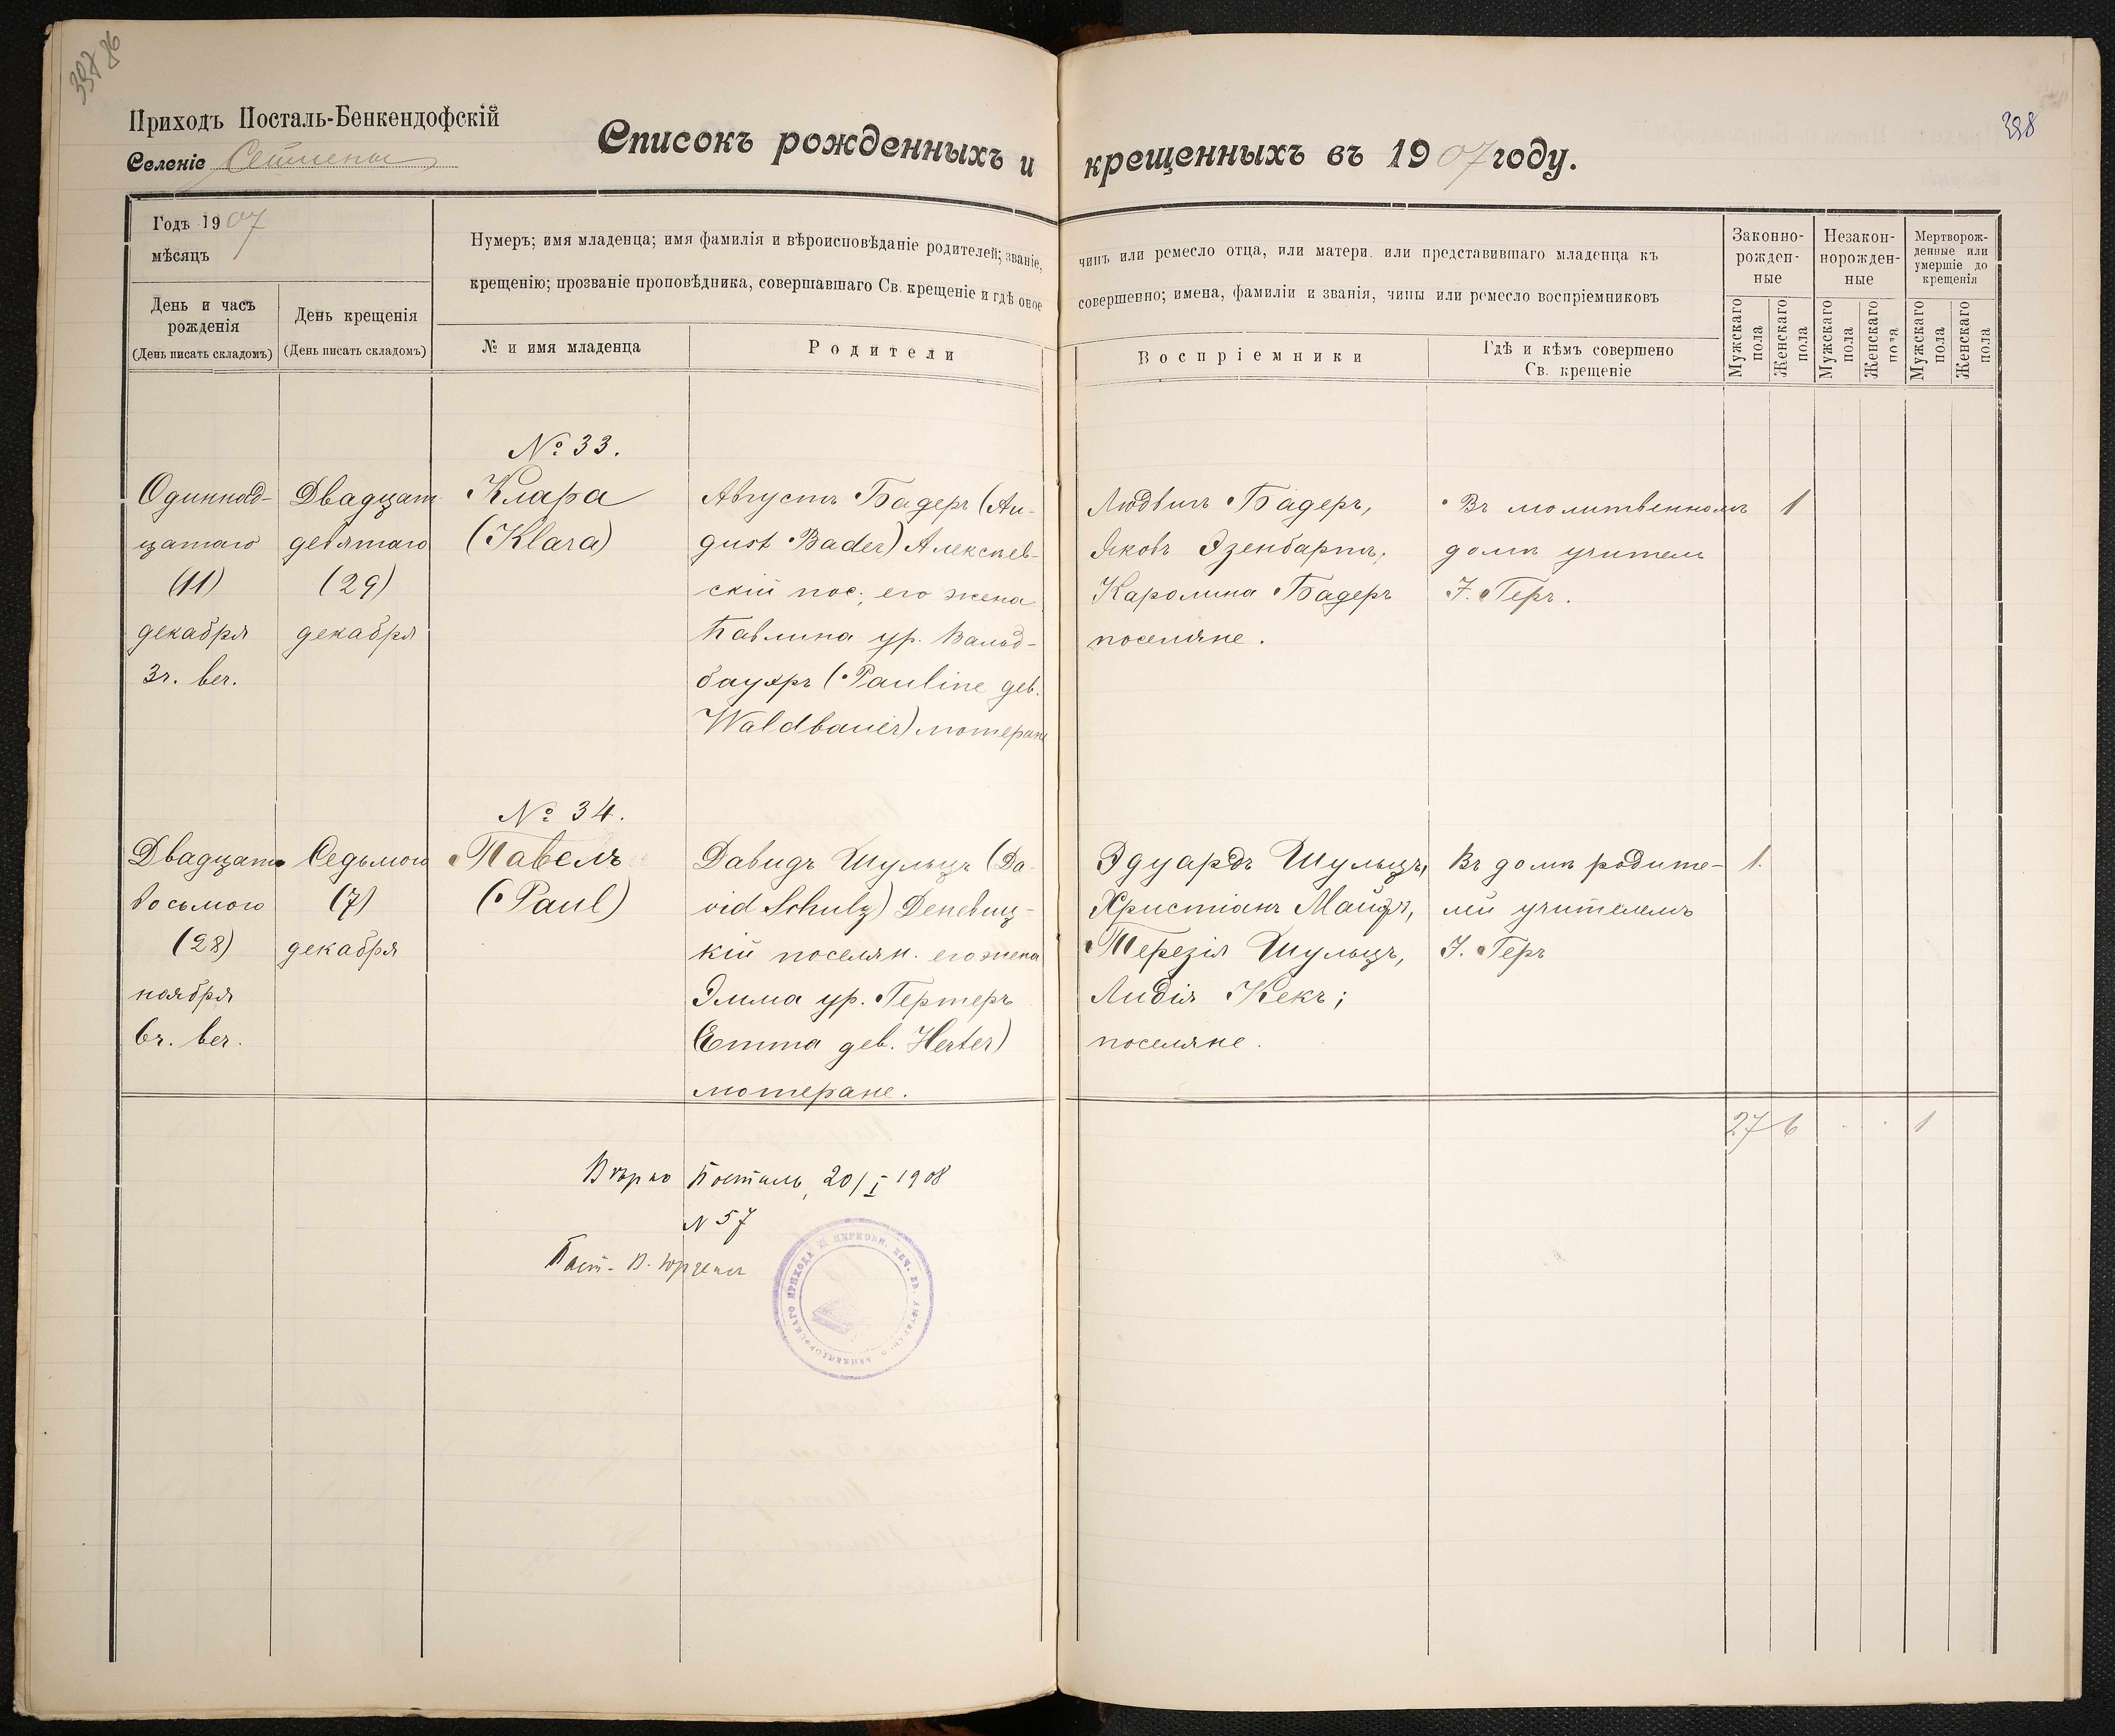 397 86
398
Приходъ Посталь-Бенкендофскій
Селеніе Сеймены
Списокъ рожденныхъ и крещенныхъ въ 1907 году.
Годъ 1907
мѣсяцъ
Нумеръ; имя младенца; имя фамилія и вѣроисповѣданіе родителей; званіе, чинъ или ремесло отца, или матери или представившаго младенца къ
крещенію; прозваніе проповѣдника, совершавшаго Св. крещеніе и гдѣ оное совершенно; имена, фамиліи и званія, чины или ремесло воспріемниковъ
День и часъ
рожденія
(День писать складомъ)
День крещенія
(День писать складомъ)
№ и имя младенца
Родители
Воспріемники
Гдѣ и кѣмъ совершено
Св. крещеніе
Законно-
рожден-
ные
Незакон-
норожден-
ные
Мертворож-
денные или
умершіе до
крещенія
Мужскаго
пола
Женскаго
пола
Мужскаго
пола
Женскаго
пола
Мужскаго
пола
Женскаго
пола
Одиннад-
цатаго
(11)
декабря
3ч. веч.
Двадцат
девятаго
(29)
декабря
№ 33.
Клара
(Klara)
Августъ Бадеръ (Au-
gust Bader) Алексѣев-
скій пос., его жена
Павлина ур. Вальд-
бауэръ (Pauline geb.
Waldbauer) лютеране
Людвигъ Бадеръ,
Яковъ Эзенбартъ,
Каролина Бадеръ
поселяне.
Въ молитвенномъ
домѣ учитель
І. Геръ.
1
Двадцать
восьмого
(28)
ноября
6ч. веч.
Седьмого
(7)
декабря
№ 34.
Павелъ
(Paul)
Давидъ Шульцъ (Da-
vid Schulz) Деневиц-
кій поселян. его жена
Эмма ур. Гертеръ
Emma geb. Herter)
лютеране.
Эдуардъ Шульцъ,
Христіанъ Майеръ,
Терезія Шульцъ,
Лидія Кекъ;
поселяне.
Въ домѣ родите-
лей учителемъ
І. Геръ
1.
27 6 . . 1
Вѣрно Посталь, 20/I 1908
N 57
Паст. В.